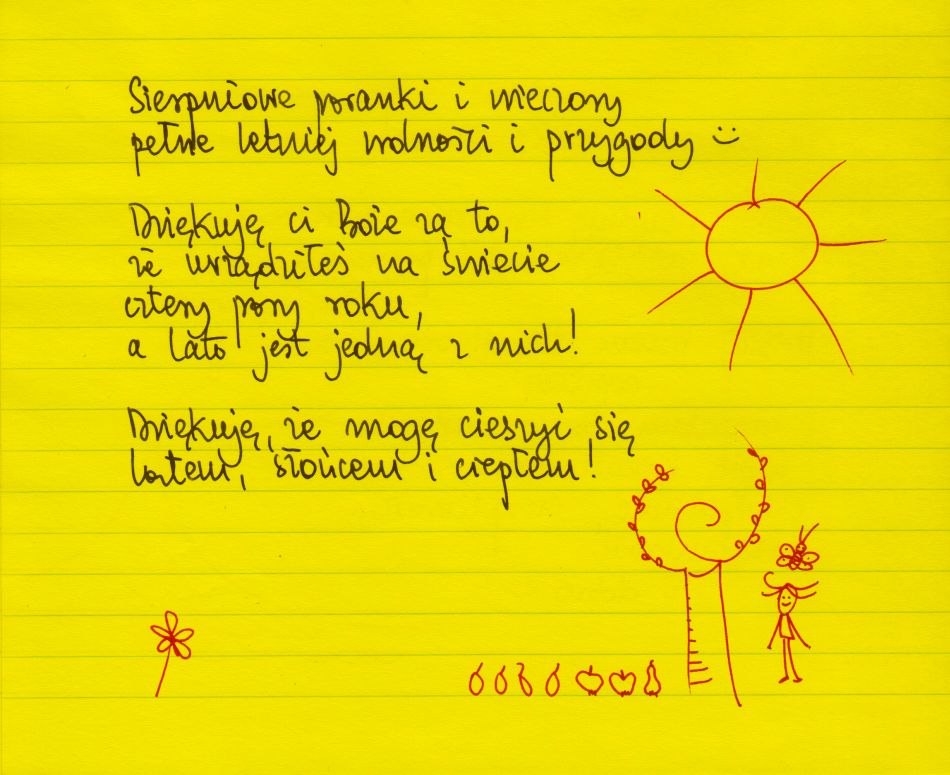 Sierpniowe poranki i wieczory
pełne letniej wolności i przygody :)
Dziękuję ci Boże za to,
że urządziłeś na świecie
cztery pory roku,
a lato jest jedną z nich!
Dziękuję, że mogę cieszyć się
latem, słońcem i ciepłem!